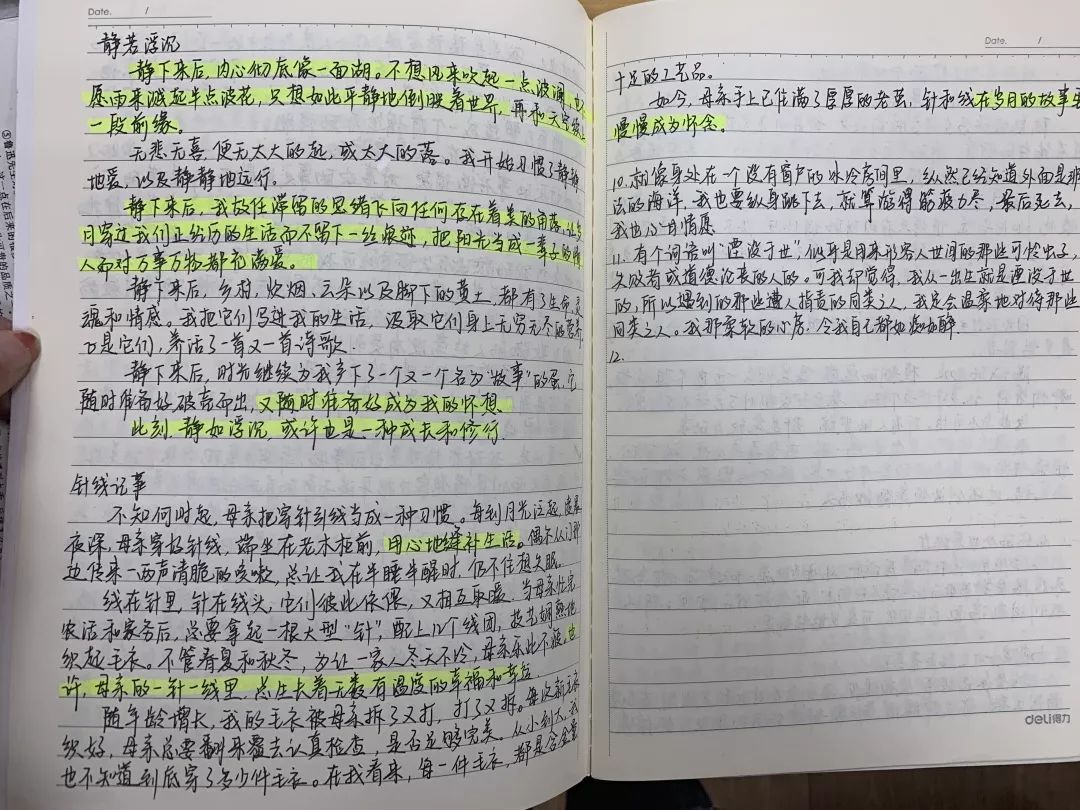 Date. /
静若浮沉
静下来后，内心彻底像一面湖。不想风来吹起一点波澜，也
愿雨来溅起半点波花，只想如此平静地倒映着世界，再和天空
一段前缘。
无悲无喜，便无太大的起，或太大的落。我开始习惯了静静
地爱，以及静静地远行。
静下来后，我放任滞留的思绪飞向任何存在着美的角落，让
日穿过我们正经历的生活而不留下一丝痕迹，把阳光当成一辈子的
人而对万事万物都充满爱。
静下来后，乡村，炊烟、云朵以及脚下的黄土，都有了生命，灵
魂和情感。我把它们写进我的生活，汲取它们身上无穷无尽的营养
是它们，养活了一首又一首诗歌。
静下来后，时光继续为我产下了一个又一个名为“故事”的蛋，它
随时准备好破壳而出，又随时准备好成为我的怀想。
此刻，静如浮沉，或许也是一种成长和修行。
针线记事
不知何时起，母亲把穿针引线当成一种习惯。每到月光泛起，
夜深，母亲穿好针线，端坐在老木柜前，用心地缝补生活。偶尔从门那
边传来一两声清脆的咳嗽，总让我在半睡半醒时，仍不住想失眠。
线在针里，针在线头，它们彼此依偎，又相互取暖。当母亲忙完
农活和家务后，总要拿起一根大型“针”，配上几个线团，技艺娴熟地
织起毛衣。不管春夏和秋冬，为让一家人冬天不冷，母亲乐此不疲。也
许，母亲的一针一线里，总生长着无数有温度的幸福和
随年龄增长，我的毛衣被母亲拆了又打，打了又拆。每次新毛衣
织好，母亲总要翻来覆去认真检查，是否足够完美。从小到大，我
也不知道到底穿了多少件毛衣。在我看来，每一件毛衣，都是含金量
Date. /
十足的工艺品。
如今，母亲手上已住满了厚厚的老茧，针和线在岁月的故事里
慢慢成为怀念。
10. 就像身处在一个没有窗户的冰冷房间里，纵然已经知道外面是
法的海洋，我也要纵身跳下去，就算游得筋疲力尽，最后死去，
我也心甘情愿
11. 有个词语叫“湮没于世”，似乎是用来形容人世间的那些可怜虫子，
失败者或道德沦丧的人的。可我却觉得，我从一出生就是湮没于世
的，所以遇到的那些遭人指责的同类之人，我定会温柔地对待那些
同类之人。我那柔软的小房，令我自己都如痴如醉.
12.
deli得力